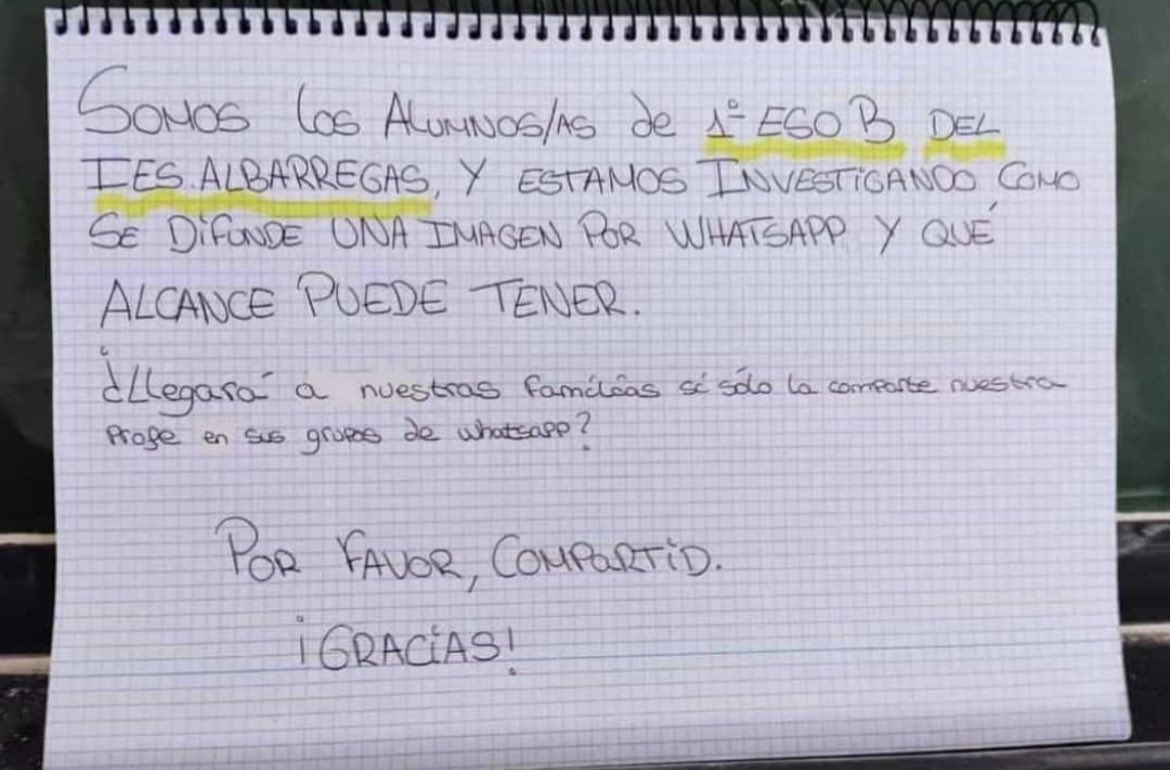 SOMOS LOS ALUMNOS/AS de 1º ESO B DEL
IES. ALBARREGAS, Y ESTAMOS INVESTIGANDO COMO
SE DIFUNDE UNA IMAGEN POR WHATSAPP Y QUÉ
ALCANCE PUEDE TENER.
¿Llegará a nuestras familias si sólo la comparte nuestra
profe en sus grupos de whatsapp?
POR FAVOR, COMPARTID.
¡GRACIAS!